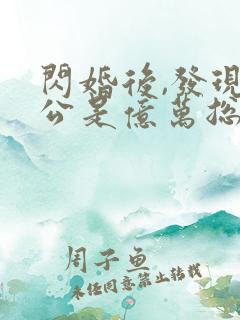 閃婚後,發現
公是億萬總
周子鱼
未经同意禁止转载